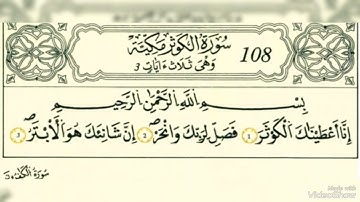 سُورَةُ الْكَوْثَرِ مَكِّيَّة
وَهِىَ ثَلَاثُ آيَاتٍ 3
108
بِسْمِ اللَّهِ الرَّحْمٰنِ الرَّحِيمِ
إِنَّا أَعْطَيْنَاكَ الْكَوْثَرَ 1 فَصَلِّ لِرَبِّكَ وَانْحَرْ 2 إِنَّ شَانِئَكَ هُوَ الْأَبْتَرُ 3
VivaVideo